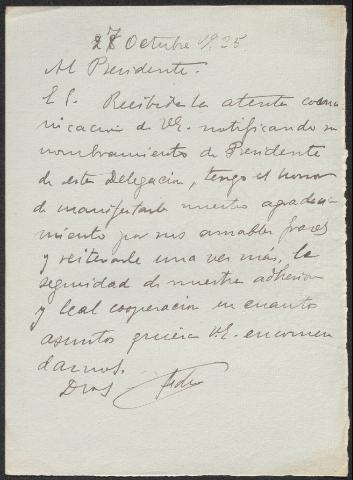 27 Octubre 1925
Al Presidente.
E S. Recibida la atenta comu
nicacion de VE. notificando su
nombramiento de Presidente
de esta Delegacion, tengo el honor
de manifestarle nuestro agradeci
miento por sus amables frases
y reiterarle una vez más, la
seguridad de nuestra adhesion
y leal cooperacion en cuantos
asuntos quiera V.E. encomen
darnos.
Dios